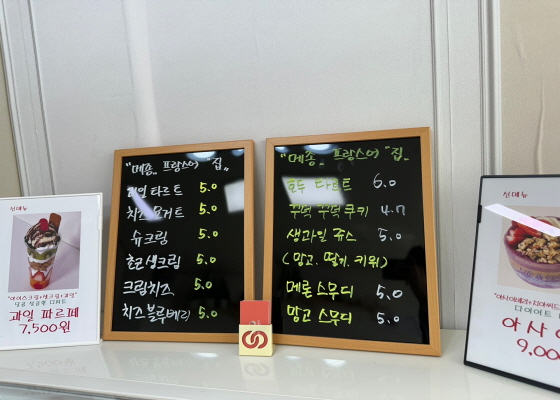 신메뉴
"아이스크림+생크림+과일"
달콤 상큼한 디저트
과일 파르페
7,500원
"메종.. 프랑스어 "집"
과일 타르트 5.0
치즈 요거트 5.0
슈크림 5.0
초코생크림 5.0
크림치즈 5.0
치즈블루베리 5.0
"메종.. 프랑스어 "집"
호두 타르트 6.0
꾸덕 꾸덕 쿠키 4.7
생과일 쥬스 5.0
(망고. 딸기. 키위)
메론 스무디 5.0
망고 스무디 5.0
신메뉴
다이어트
아사이
9,00